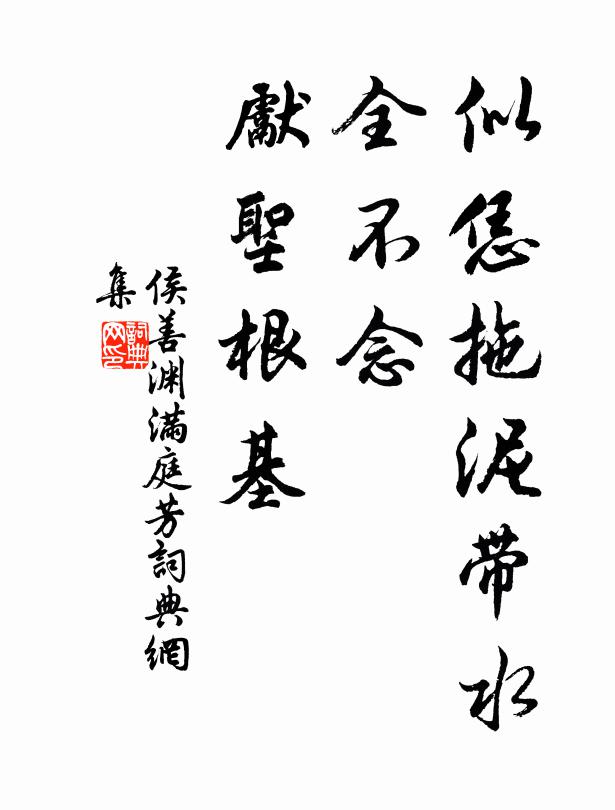 似恁拖泥带水
全不念
獻聖根基
侯善渊滿庭芳詞典網
集
詞典网印